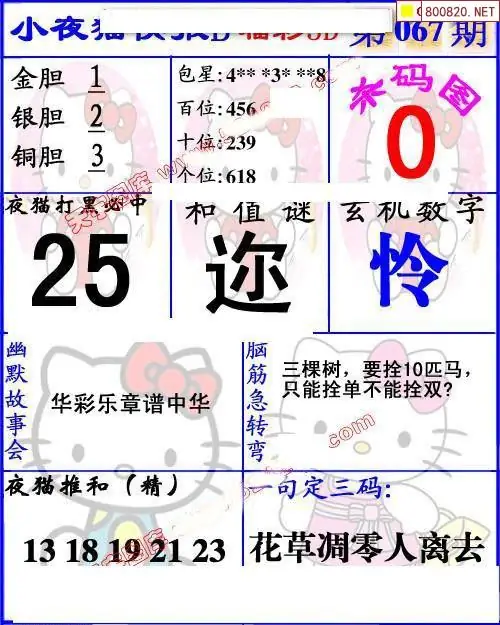 800820.NET
小夜猫快报D 福彩3D 第067期
金胆 1
银胆 2
铜胆 3
包星:4** *3* **8
百位:456
十位:239
个位:618
杀码图
0
夜猫打黑必中
25
和值谜
迩
玄机数字
怜
幽默故事会
华彩乐章谱中华
脑筋急转弯
三棵树，要拴10匹马，
只能拴单不能拴双?
夜猫推和（精）
13 18 19 21 23
一句定三码:
花草凋零人离去